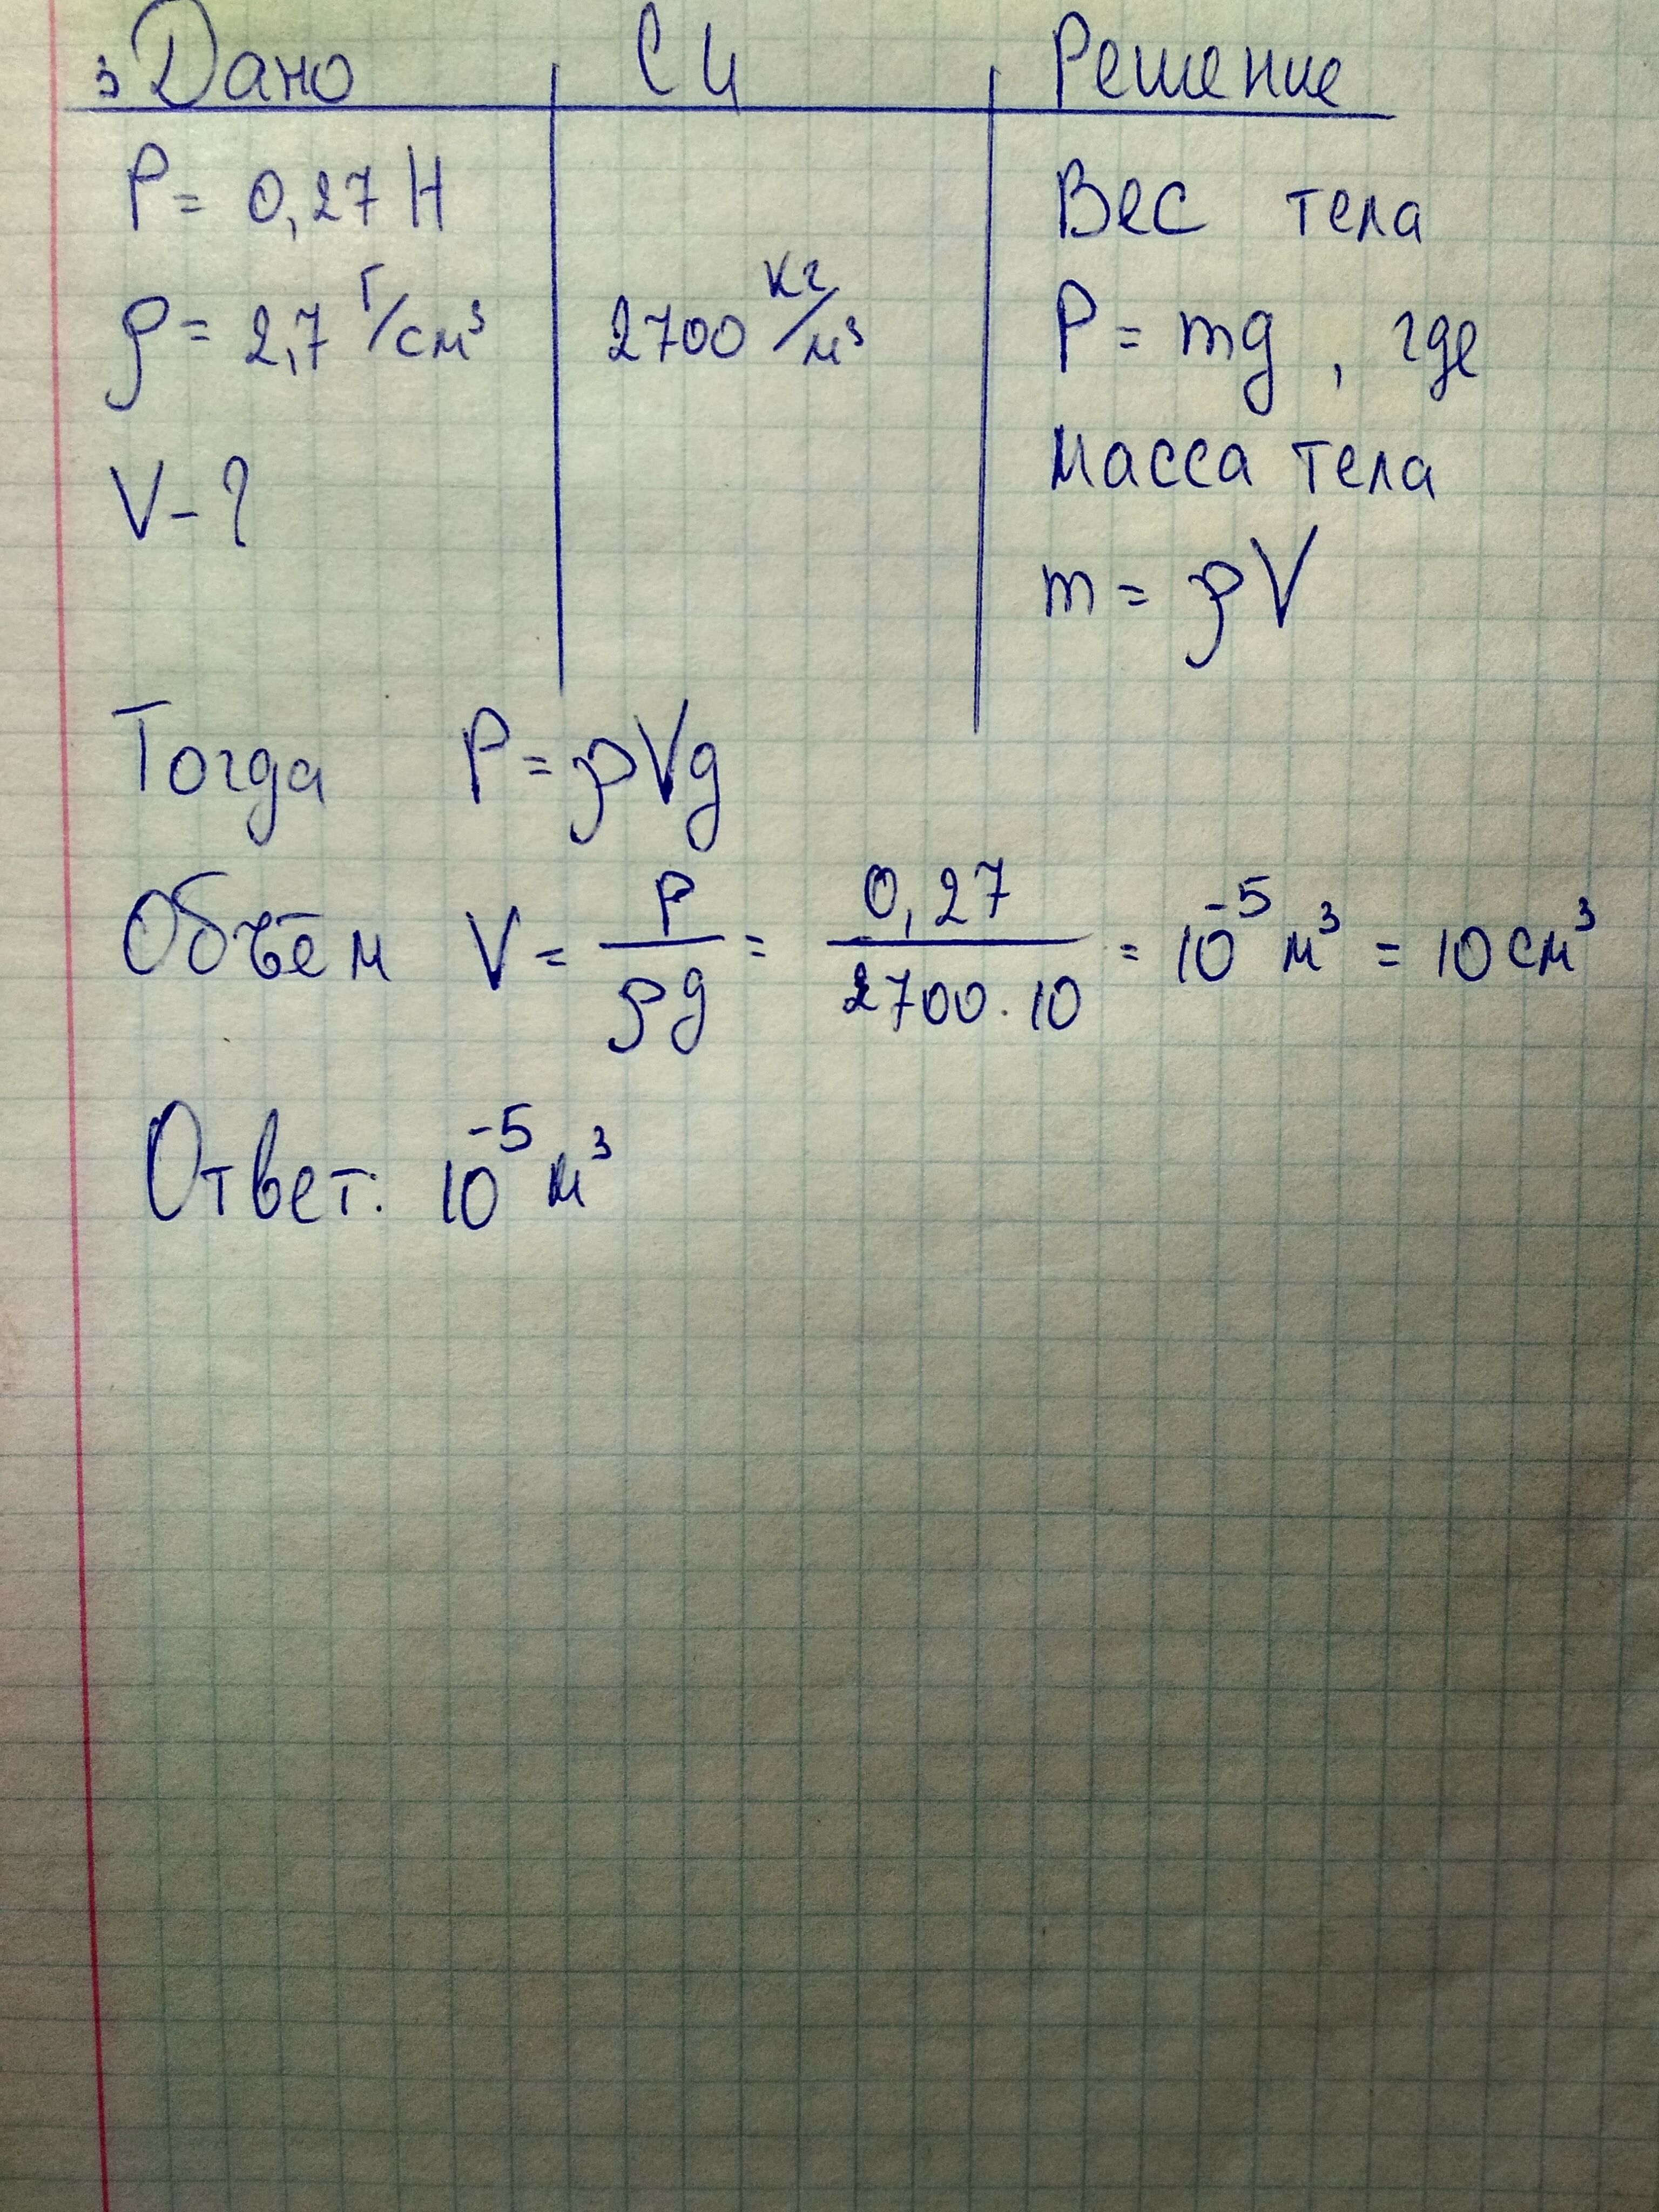 3 Дано СИ Решение
P = 0,27 Н Вес тела
ρ = 2,7 г/см³ 2700 кг/м³ P = mg, где
V - ? масса тела
m = ρV
Тогда P = ρVg
Объём V = P/ρg = 0,27/2700·10 = 10⁻⁵ м³ = 10 см³
Ответ: 10⁻⁵ м³